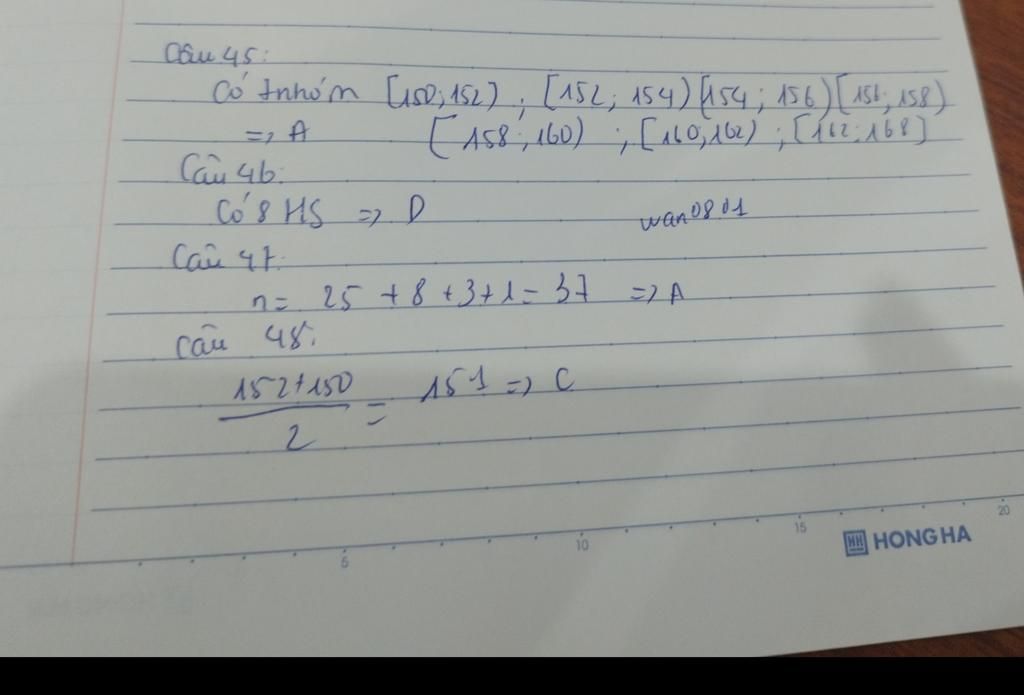 Câu 45:
Có 7 nhóm [150;152) ; [152; 154) [154; 156) [156; 158)
=> A [158;160) ; [160;162) ; [162;168]
Câu 46:
Có 8 HS => D
wan08.01
Câu 47:
n = 25 + 8 + 3 + 1 = 37 => A
Câu 48:
152+150
2
= 151 => C
5 10 15 20
HH HONG HA